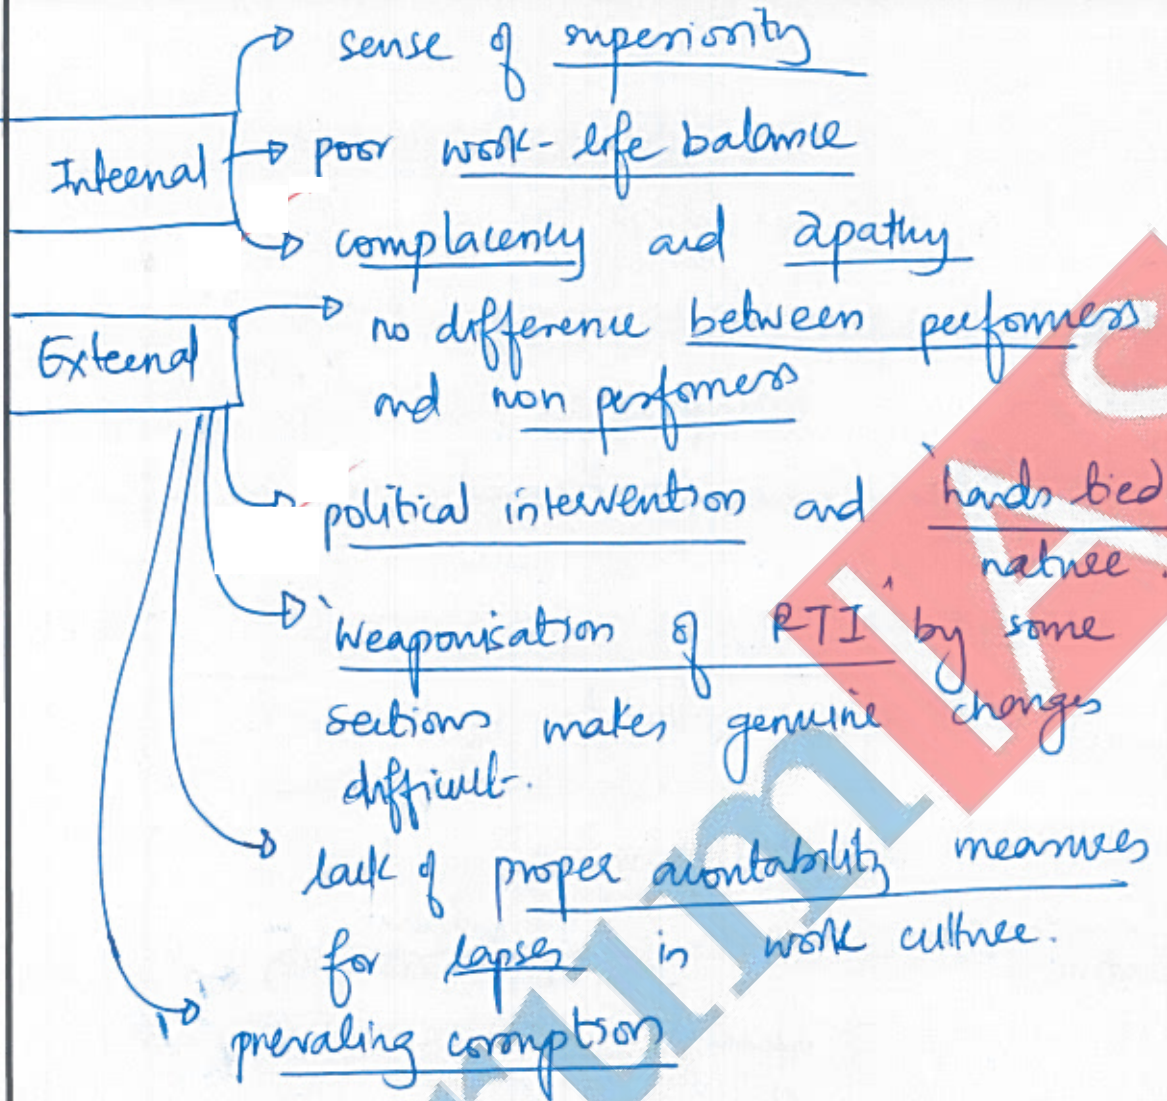 sense of superiority
Internal
poor work-life balance
complacency and apathy
no difference between performers
External
and non performers
political intervention and 'hands tied'
nature.
'Weaponisation of RTI' by some
sections makes genuine changes
difficult.
lack of proper accontability measures
for lapses in work culture.
prevaling corruption